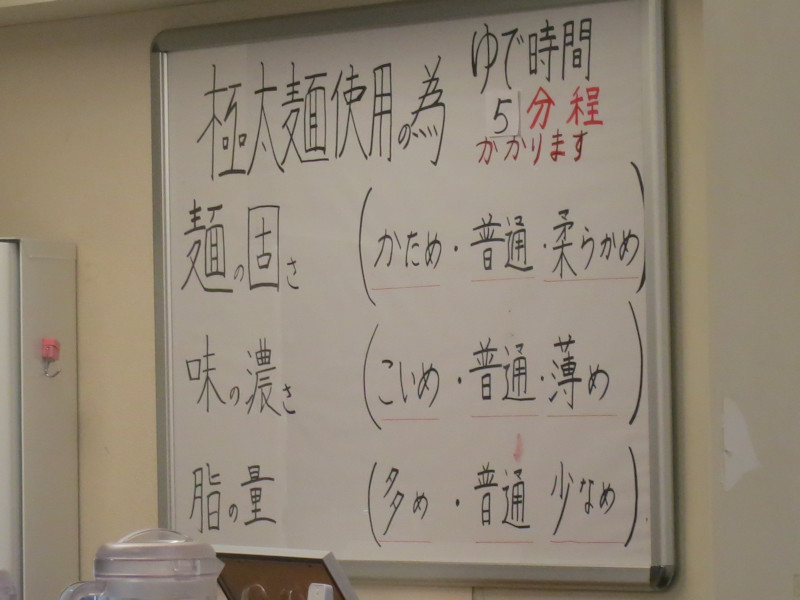 極太麺使用の為
ゆで時間
5分程
かかります
麺の固さ (かため・普通・柔らかめ)
味の濃さ (こいめ・普通・薄め)
脂の量 (多め・普通 少なめ)